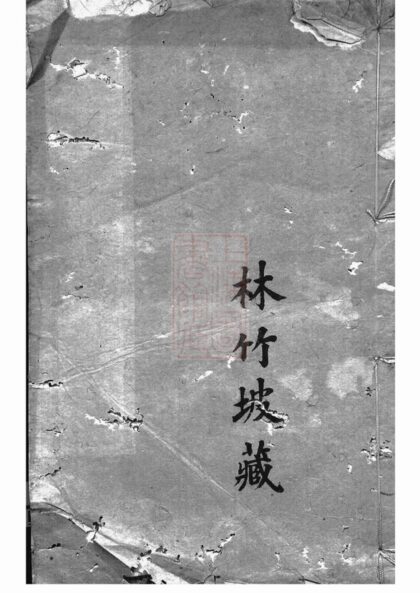 林竹坡藏